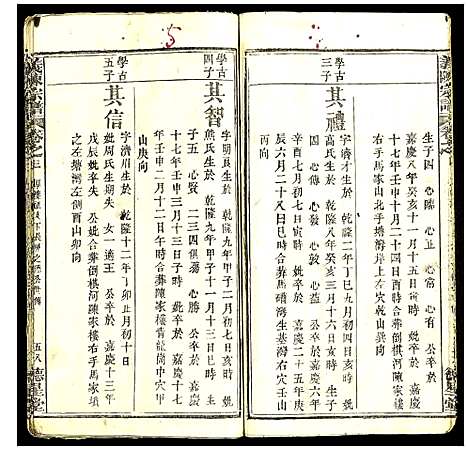 義陳宗譜
生子四 心勝 心正 心富 心有 公卒於
嘉慶八年癸亥十一月十五日亥時 妣卒於 嘉慶
十七年壬申十月二十四日酉時合葬倒棋河陳家樓
右手馬家山大塘灣岸上左穴乾山巽向
學古三子
其禮
字濟才生於 乾隆二年丁巳九月初三日亥時 妣
高氏生於 乾隆八年癸亥三月十六日亥時 子四
心傳 心發 心敦 心益 公卒於 嘉慶六年
辛酉七月初七日寅時 妣卒於 嘉慶二十五年庚
辰六月二十八日巳時合葬馬磧灣生基灣右穴壬山
丙向
學古四子
其智
字明良生於 乾隆九年甲子二月初七日亥時 妣
熊氏生於 乾隆 年 十一月十三日巳時
子五 心賢 二三四俱殤 心勝 公卒於 嘉慶
十七年壬申三月十三日子時 妣卒於 嘉慶十七
年壬申二月十二日午時合葬陳家樓青龍崗中穴甲
山庚向
學古五子
其信
字濟眉生於 乾隆十二年丁卯正月初十日
妣周氏生歿期失 女一適王 公卒於 嘉慶十三年
戊辰妣卒失 公妣合葬倒棋河陳家樓右手馬家塆
之左塘灣左側酉山卯向
義陳宗譜
五八
德星堂